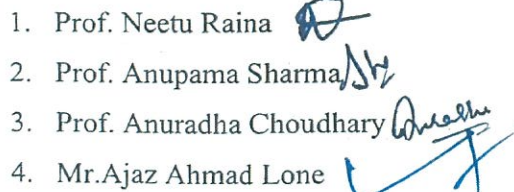 1. Prof. Neetu Raina
2. Prof. Anupama Sharma
3. Prof. Anuradha Choudhary
4. Mr.Ajaz Ahmad Lone